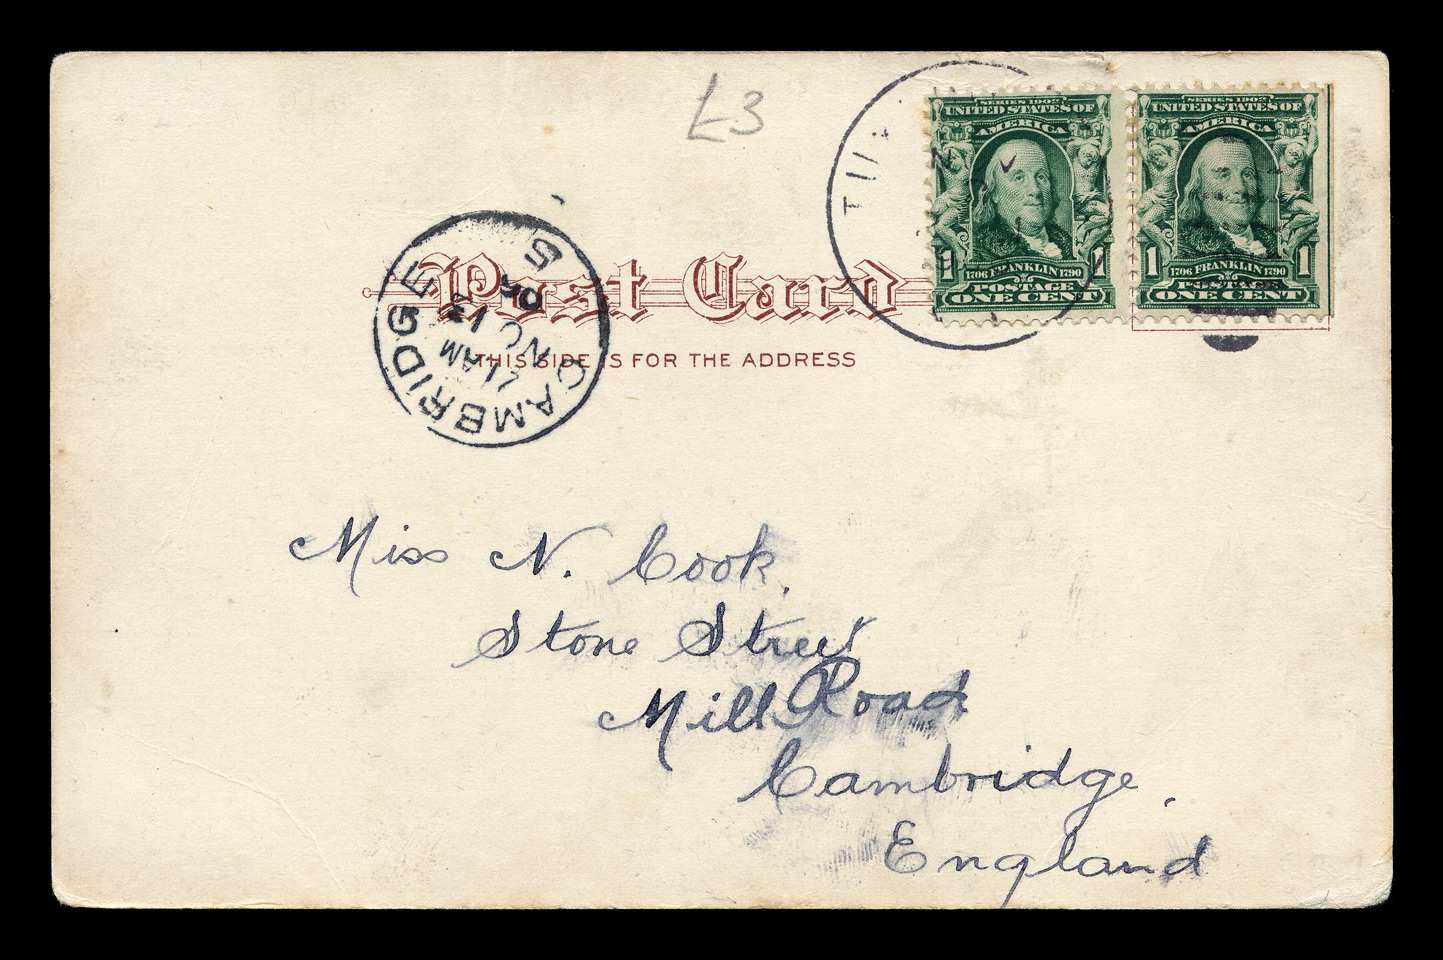 £3
SERIES 1902
UNITED STATES OF
AMERICA
1 1
1706 FRANKLIN 1790
POSTAGE
ONE CENT
SERIES 1902
UNITED STATES OF
AMERICA
1 1
1706 FRANKLIN 1790
POSTAGE
ONE CENT
Post Card
THIS SIDE IS FOR THE ADDRESS
CAMBRIDGE
11 AM
NO 13
05
Miss N. Cook,
Stone Street
Mill Road
Cambridge,
England